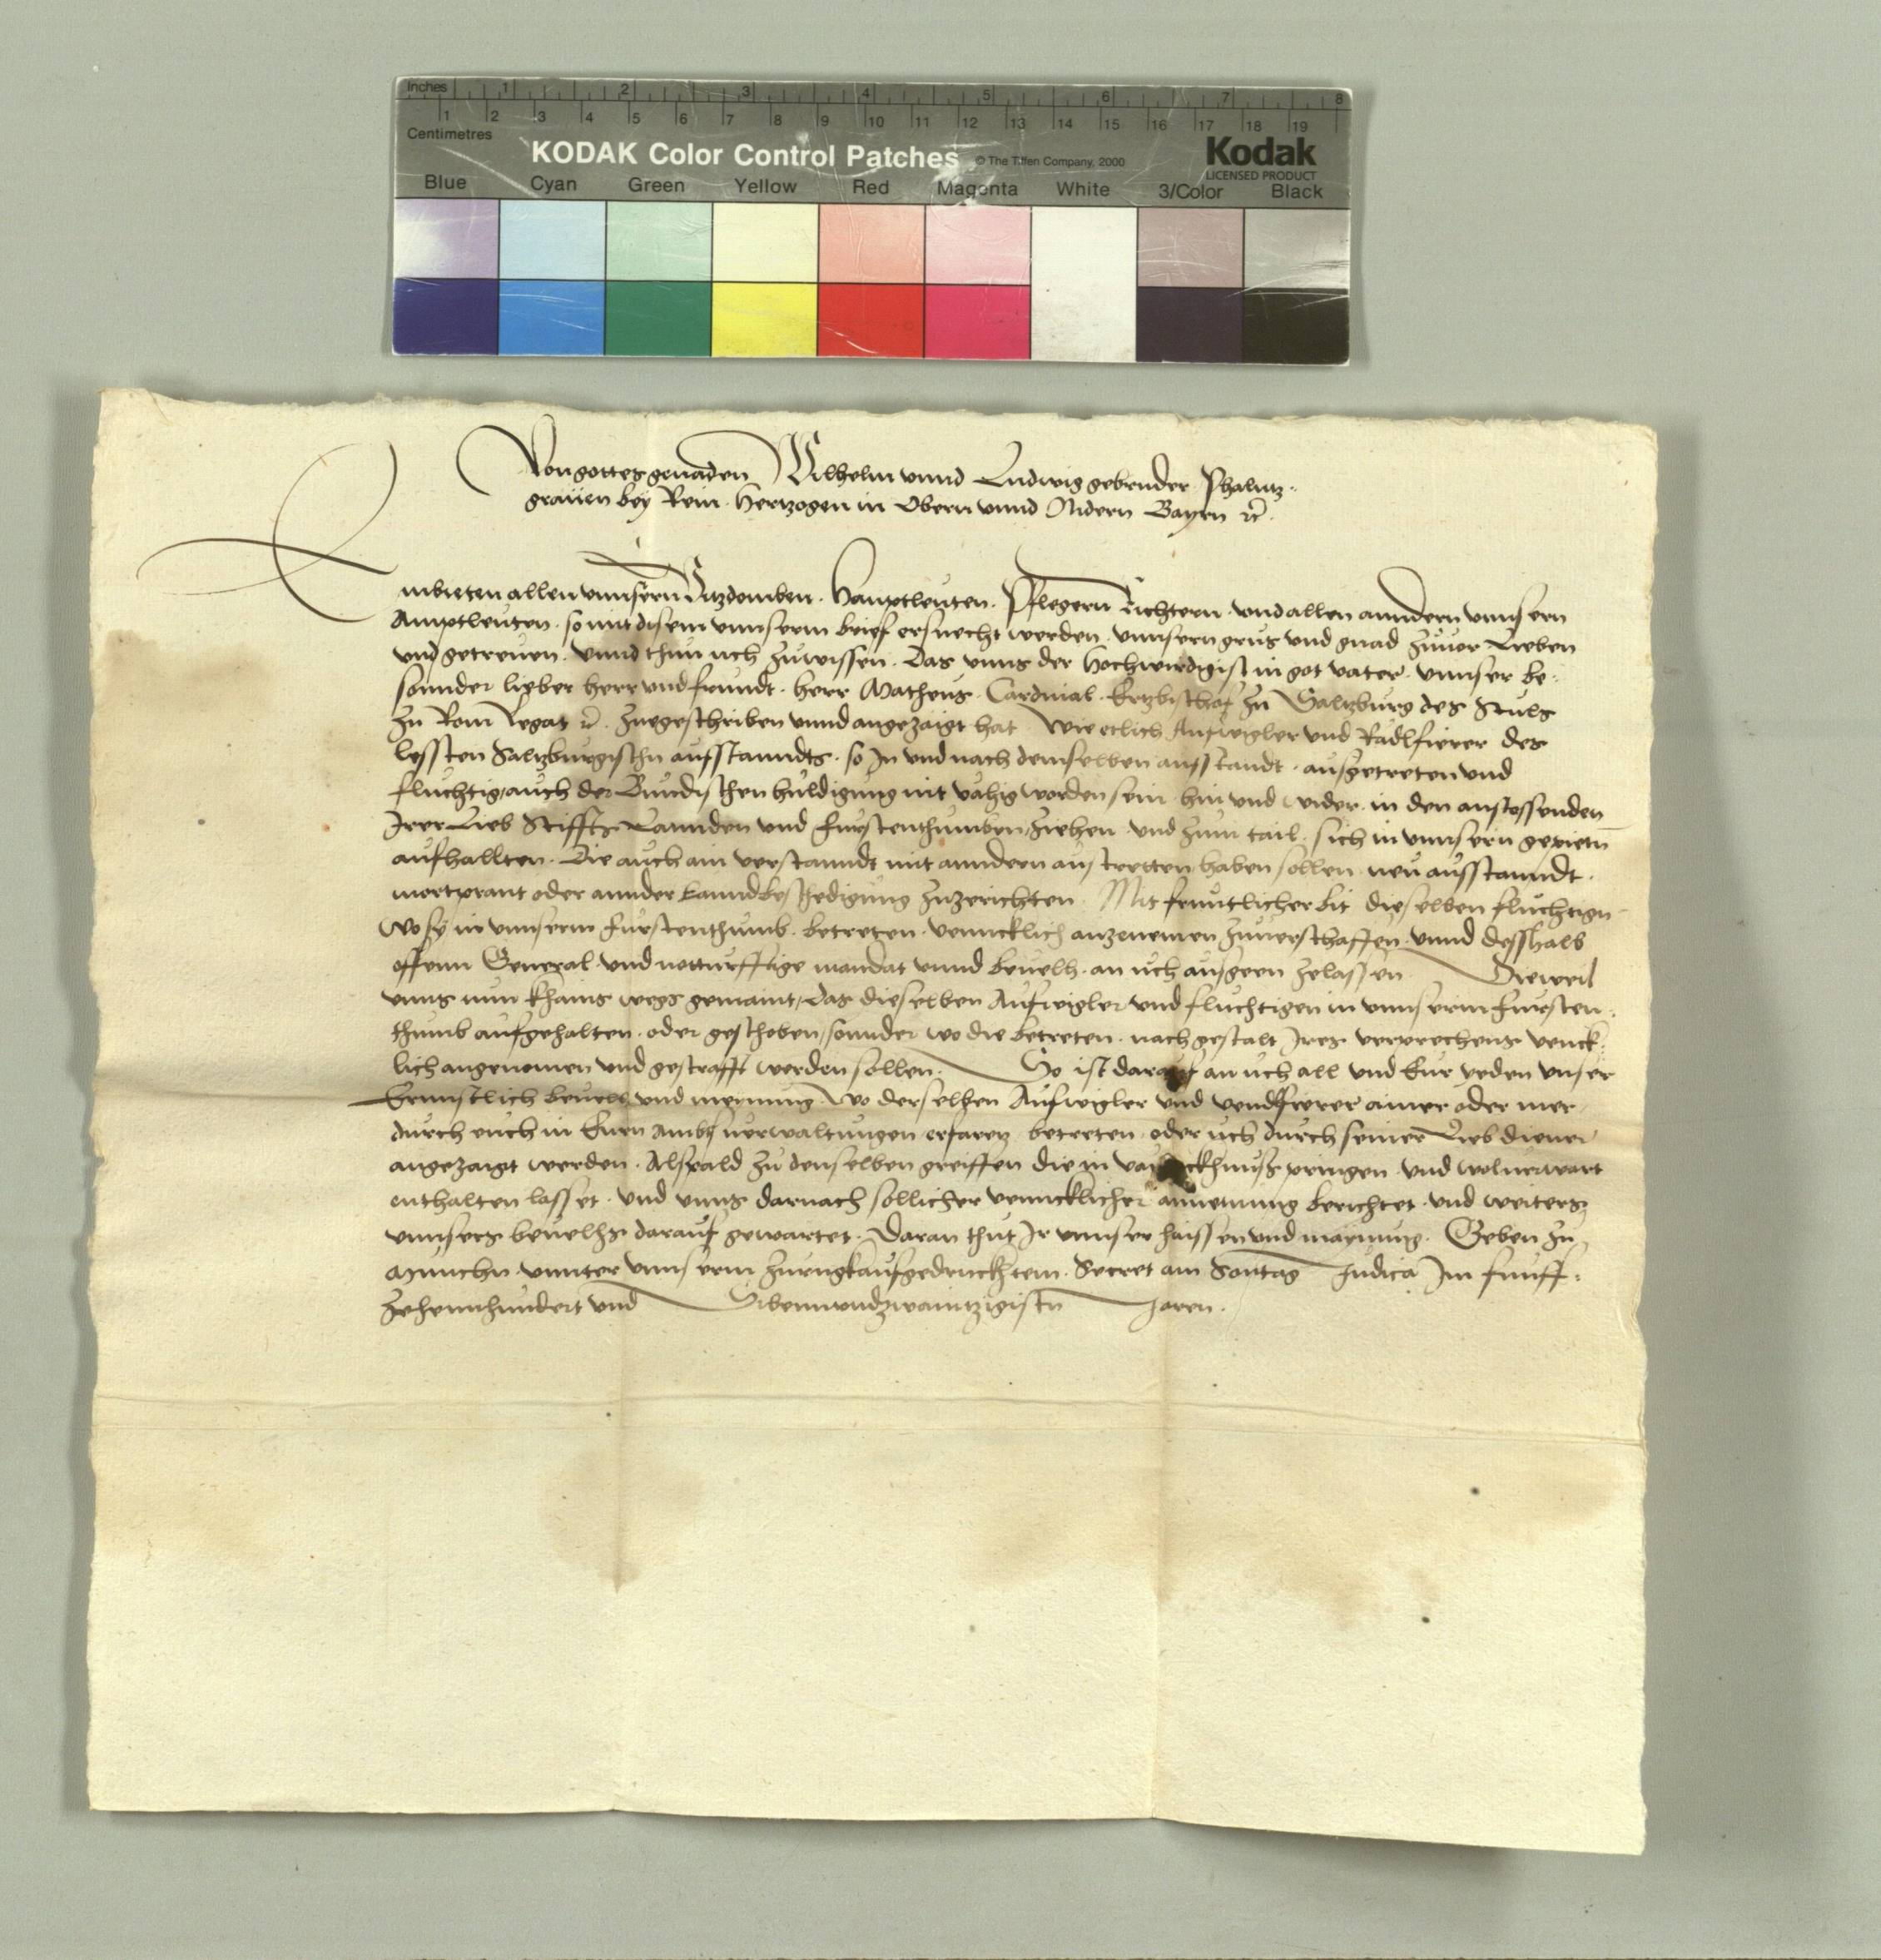 Inches 1 2 3 4 5 6 7 8
1 2 3 4 5 6 7 8 9 10 11 12 13 14 15 16 17 18 19
Centimetres
KODAK Color Control Patches © The Tiffen Company, 2000 Kodak
LICENSED PRODUCT
Blue Cyan Green Yellow Red Magenta White 3/Color Black
Von gottes genaden Wilhelm unnd Ludwig gebruder Phalntz-
graven bey Rein. Hertzogen in Obern unnd Nidern Bayrn rc.
Embieten allen unnsern Vitzdomben. Hauptleuten. Pflegern Richtern. und allen anndern unnsern
Amptleuten. so mit disem unnserm brief ersuecht werden. unnsern grus und gnad zuvor Lieben
und getreuen. unnd thun uch zuwissen. Das unns der hochwirdigist in got vater. unnser be-
sonnder lieber herr und frundt. herr Matheus. Cardinal. Ertzbischof zu Saltzburg des Stuls
zu Rom Legat rc. zuegeschriben unnd angezaigt hat Wie etlich Aufwigler und Radlfierer des
lessten Saltzburgischn aufstanndts. so In und nach demselben aufstandt. ausgetreten und
fluchtig, auch der Bundischen huldigung nit vahig worden sein hin und wider. in den anstossenden
Irer Lieb Stiffts Lannden und furstenthumben, ziehen und zum tail. sich in unnsern gepietn
aufhallten. Die auch ain verstanndt mit anndern austretten haben sollen neu aufstanndt.
mortprant oder annder Lanndbeschedigung zuzerichten. Mit fruntlicher bit dieselben fluchtign
wo sy in unnserm furstenthumb. betreten. venncklich anzenemen zuverschaffen. unnd desshalb
offenn General. und notturfftige mandat unnd bevelh. an uch ausgeen zelassen Dieweil
unns nun khains wegs gemaint, das dieselben Aufwigler und fluchtigen in unnserm fursten-
thumb aufgehalten. oder geschoben, sonnder wo die betreten. nach gestalt Ires verprechens venck-
lich angenomen und gestrafft werden sollen. So ist darauf an uch all und Eur yeden unser
Ernnstlich bevelh und meynung Wo derselben Aufwigler und vendfierer ainer oder mer
durch euch in Eurn ambts verwaltungen erfaren betreten. oder uch durch seiner Lieb diener
angezaigt werden. Alspald zu denselben greiffen die in pringen und wolverwart
enthalten lasset. und unns darnach sollicher venncklicher annemung berichtet. und weiters
unnsers bevelhs darauf gewartet. Daran thut Ir unnser haissen und maynung. Geben zu
Munchn. unnter unnserm zurugkaufgedruckhtem. Secret am Sontag Judica Im funff-
zehennhundert und Sibenundzwaintzigistn Jaren.